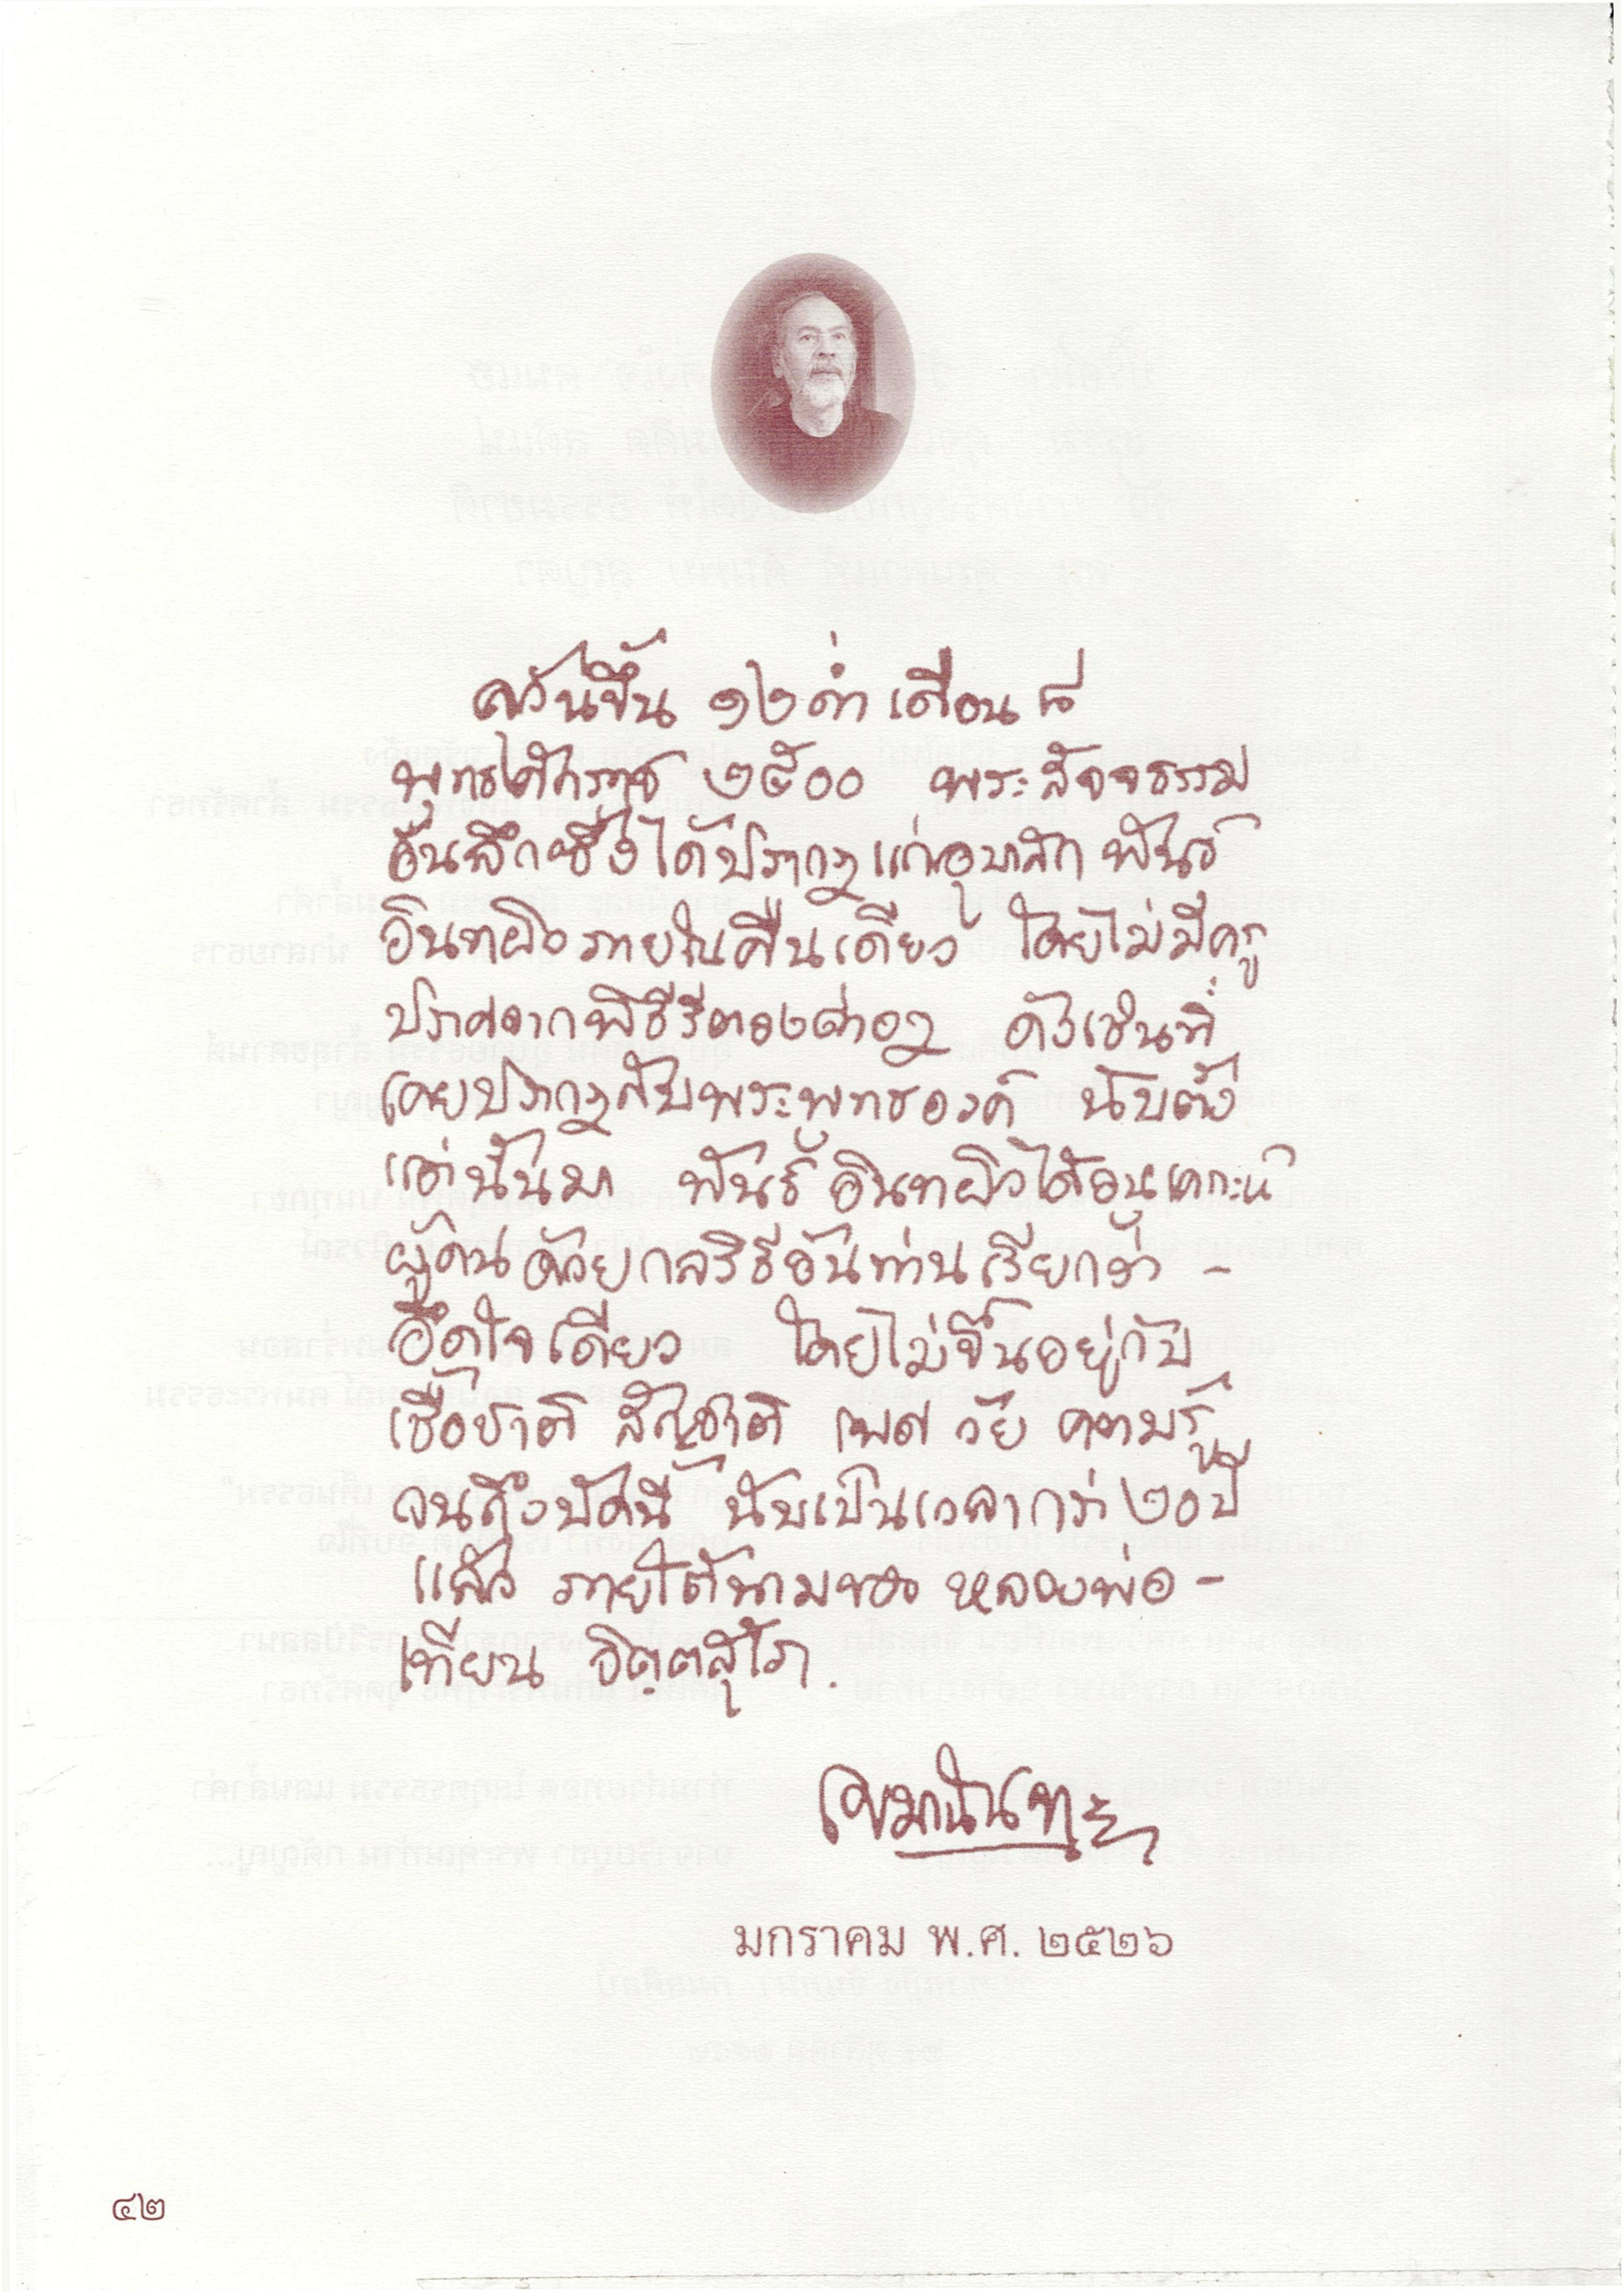 ครั้นขึ้น ๑๒ ค่ำ เดือน ๘
พุทธศักราช ๒๕๐๐ พระสัจจธรรม
อันลึกซึ้งได้ปรากฏแก่อุบาสก พันธ์
อินทผิว ภายในคืนเดียว โดยไม่มีครู
ปราศจากพิธีรีตองต่างๆ ดังเช่นที่
เคยปรากฏกับพระพุทธองค์ นับตั้ง
แต่นั้นมา พันธ์ อินทผิวได้อนุเคราะห์
ผู้คนด้วยกลวิธีอันท่านเรียกว่า -
อึดใจเดียว โดยไม่ขึ้นอยู่กับ
เชื้อชาติ สัญชาติ เพศ วัย ความรู้
จนถึงบัดนี้ นับเป็นเวลากว่า ๒๐ ปี
แล้ว ภายใต้นามของ หลวงพ่อ -
เทียน จิตฺตสุโภ.
เขมานันทะ
มกราคม พ.ศ. ๒๕๒๖
๔๒